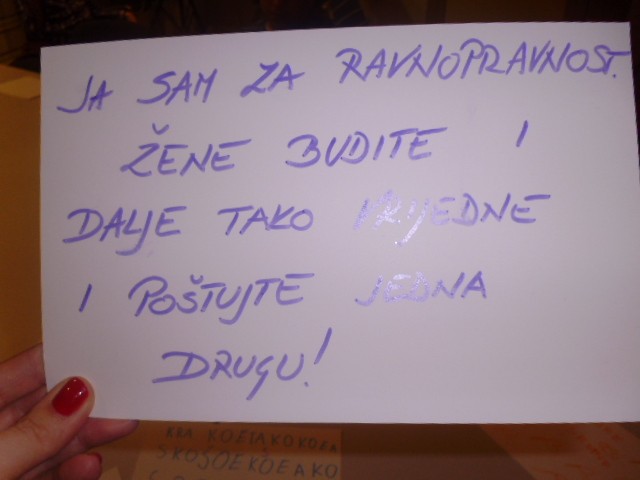 JA SAM ZA RAVNOPRAVNOST.
ŽENE BUDITE I
DALJE TAKO VRIJEDNE
I POŠTUJTE JEDNA
DRUGU!